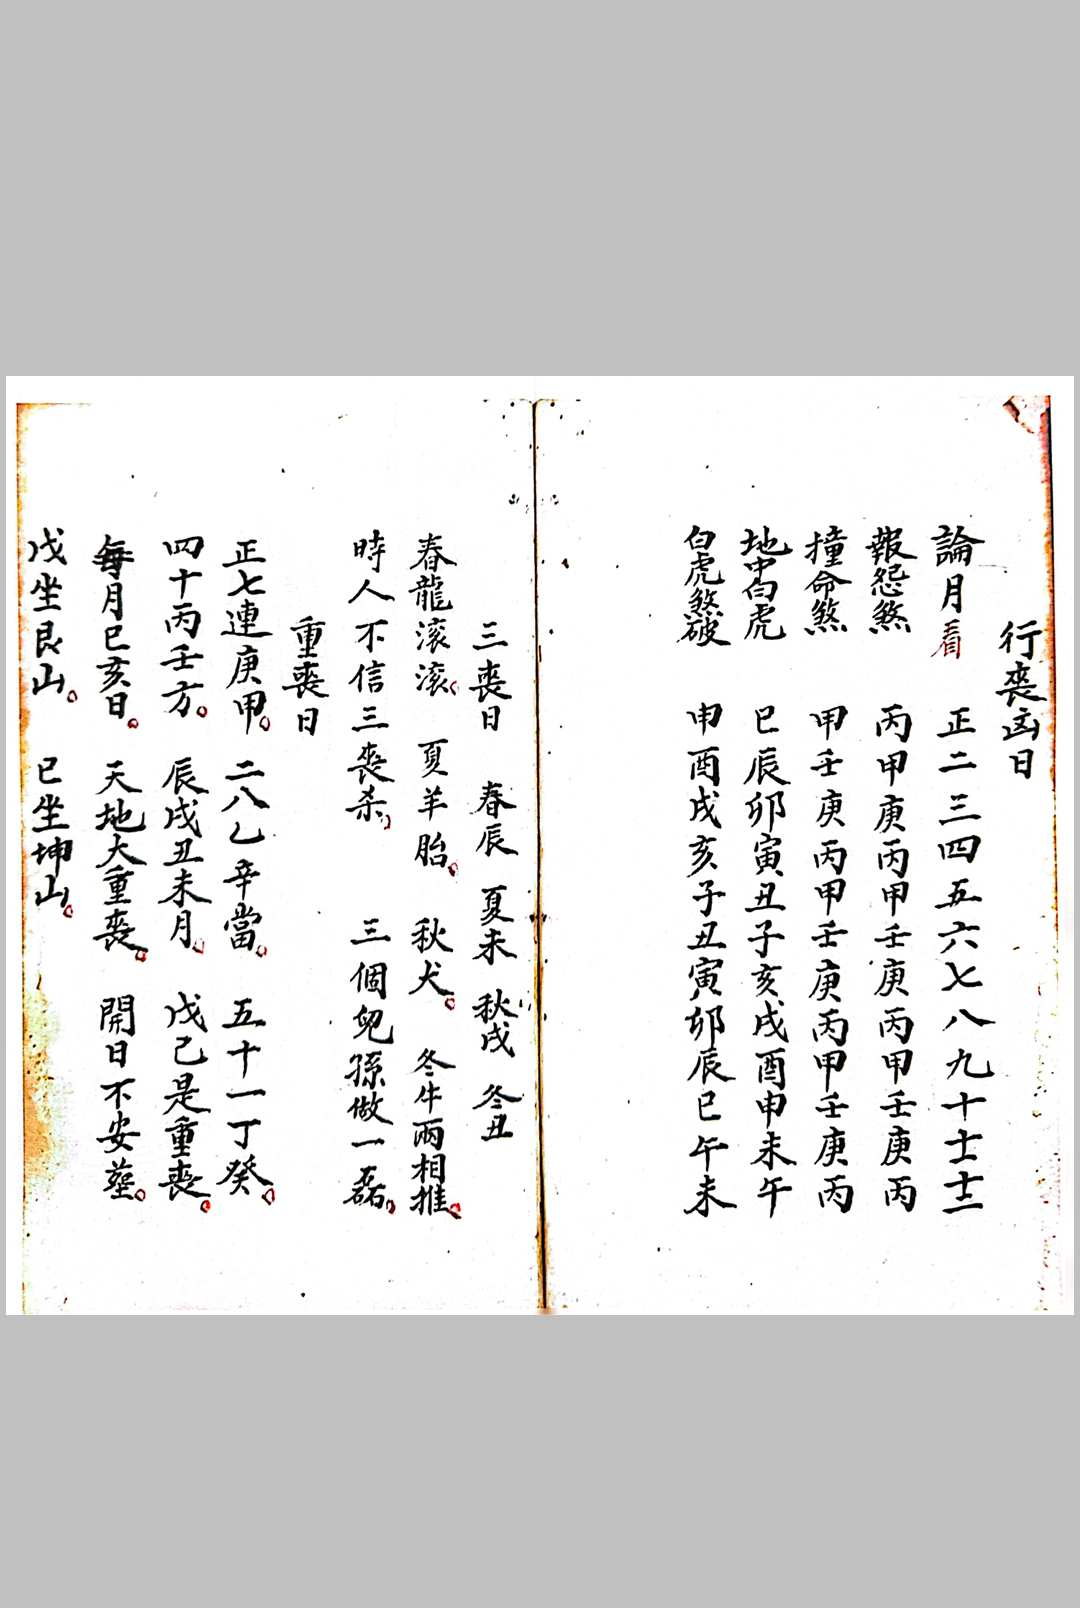 行喪凶日
論月看 正二三四五六七八九十十一十二
報怨煞 丙甲庚丙甲壬庚丙甲壬庚丙
撞命煞 甲壬庚丙甲壬庚丙甲壬庚丙
地中白虎 巳辰卯寅丑子亥戌酉申未午
白虎煞破 申酉戌亥子丑寅卯辰巳午未
三喪日 春辰 夏未 秋戌 冬丑
春龍滚滚。 夏羊胎。 秋犬。 冬牛兩相推。
時人不信三喪杀。 三個兒孫做一磊。
重喪日
正七連庚甲。 二八乙辛當。 五十一丁癸。
四十丙壬方。 辰戌丑未月。 戊己是重喪。
每月巳亥日。 天地大重喪。 開日不安塟。
戊坐艮山。 巳坐坤山。